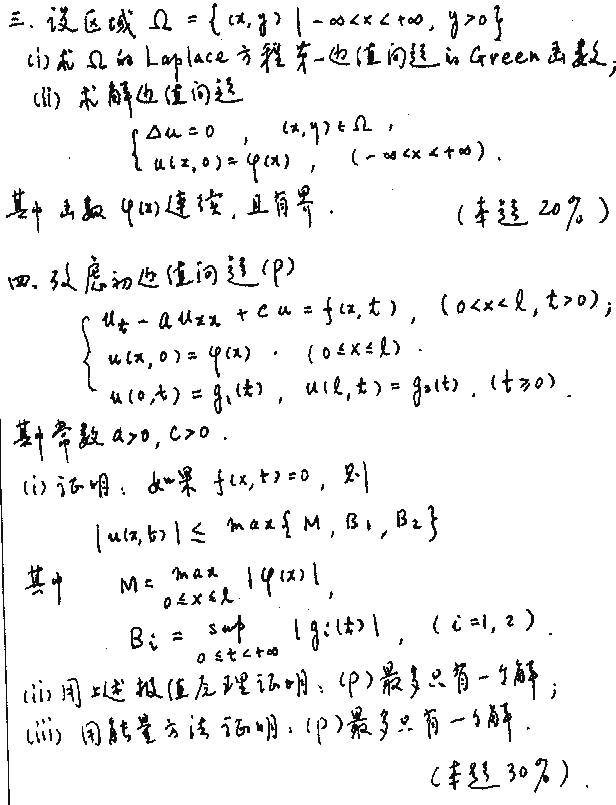 三. 设区域 Ω = {(x,y) | -∞<x<+∞, y>0}
(i) 求 Ω 的 Laplace 方程第一边值问题的 Green 函数;
(ii) 求解边值问题
{ Δu=0 , (x,y)∈Ω ,
u(x,0)=φ(x) , (-∞<x<+∞).
其中函数 φ(x) 连续, 且有界. (本题 20%)
四. 考虑初边值问题 (P)
{ u_t - a u_xx + c u = f(x,t), (0<x<l, t>0);
u(x,0)=φ(x) . (0≤x≤l) .
u(0,t)=g₁(t), u(l,t)=g₂(t). (t≥0).
其中常数 a>0, c>0.
(i) 证明: 如果 f(x,t)=0, 则
|u(x,t)| ≤ max{ M, B₁, B₂ }
其中 M = max_{0≤x≤l} |φ(x)|,
B_i = sup_{0≤t<+∞} |g_i(t)| , (i=1,2).
(ii) 用上述极值原理证明: (P) 最多只有一个解;
(iii) 用能量方法证明: (P) 最多只有一个解.
(本题 30%).